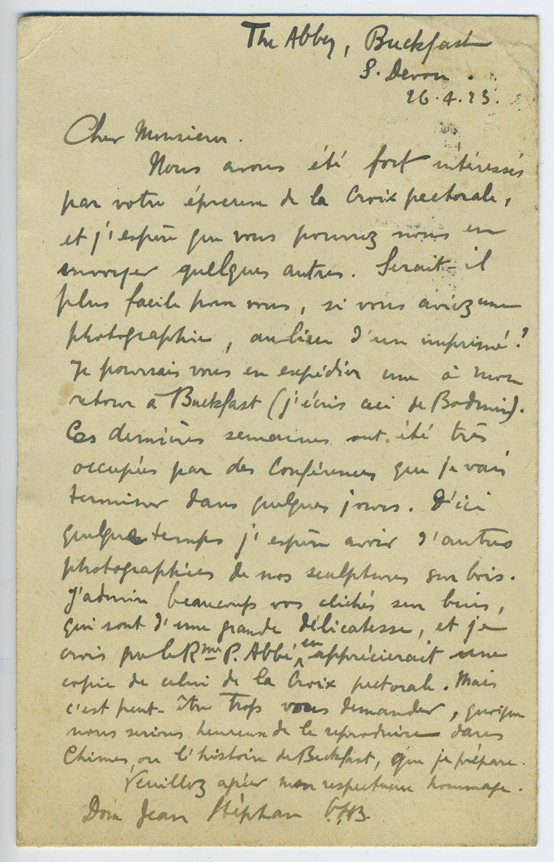 The Abbey, Buckfast
S. Devon.
26.4.23.
Cher Monsieur.
Nous avons été fort intéressés
par votre épreuve de la Croix pectorale,
et j'espère que vous pourrez nous en
envoyer quelques autres. Serait-il
plus facile pour vous, si vous aviez une
photographie, au lieu d'un imprimé?
Je pourrais vous en expédier une à mon
retour à Buckfast (j'écris ceci de Bodmin).
Ces dernières semaines ont été très
occupées par des Conférences que je vais
terminer dans quelques jours. D'ici
quelque temps j'espère avoir d'autres
photographies de nos sculptures sur bois.
J'admire beaucoup vos clichés sur buis,
qui sont d'une grande délicatesse, et je
crois que le Rme P. Abbé en apprécierait une
copie de celui de la Croix pectorale. Mais
c'est peut-être trop vous demander, quoique
nous serions heureux de le reproduire dans
Chimes, ou l'histoire de Buckfast, que je prépare.
Veuillez agréer mon respectueux hommage.
Dom Jean Stéphan